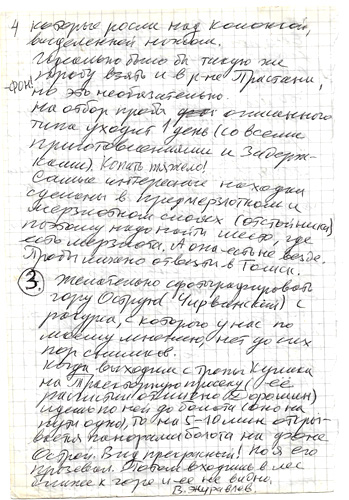 4 которые росли над колонкой,
выделенной ножом.
Идеально было бы такую же
-фон пробу взять и в р-не Пристани,
но это необязательно.
На отбор проб описанного
типа уходит 1 день (со всеми
приготовлениями и задерж-
ками). Копать тяжело!
Самые интересные находки
сделаны в предмерзлотном и
мерзлотном слоях (отстойники)
поэтому надо найти место, где
есть мерзлота. А она есть не везде.
Пробы можно отвезти в Томск.
3. Желательно сфотографировать
гору Острую ( ) с
ракурса, с которого у нас по
моему мнению нет до сих
пор снимков.
Когда выходим с тропы Кулика
на просеку (её
расчистил отменно Дорошин)
идешь по ней до болота (оно на
пути одно), то на 5-10 мин откры-
вается панорама болота на фоне
Острой. Вид прекрасный! Но я его
прозевал. Потом входишь в лес
ближе к горе и её не видно.
В. Журавлев